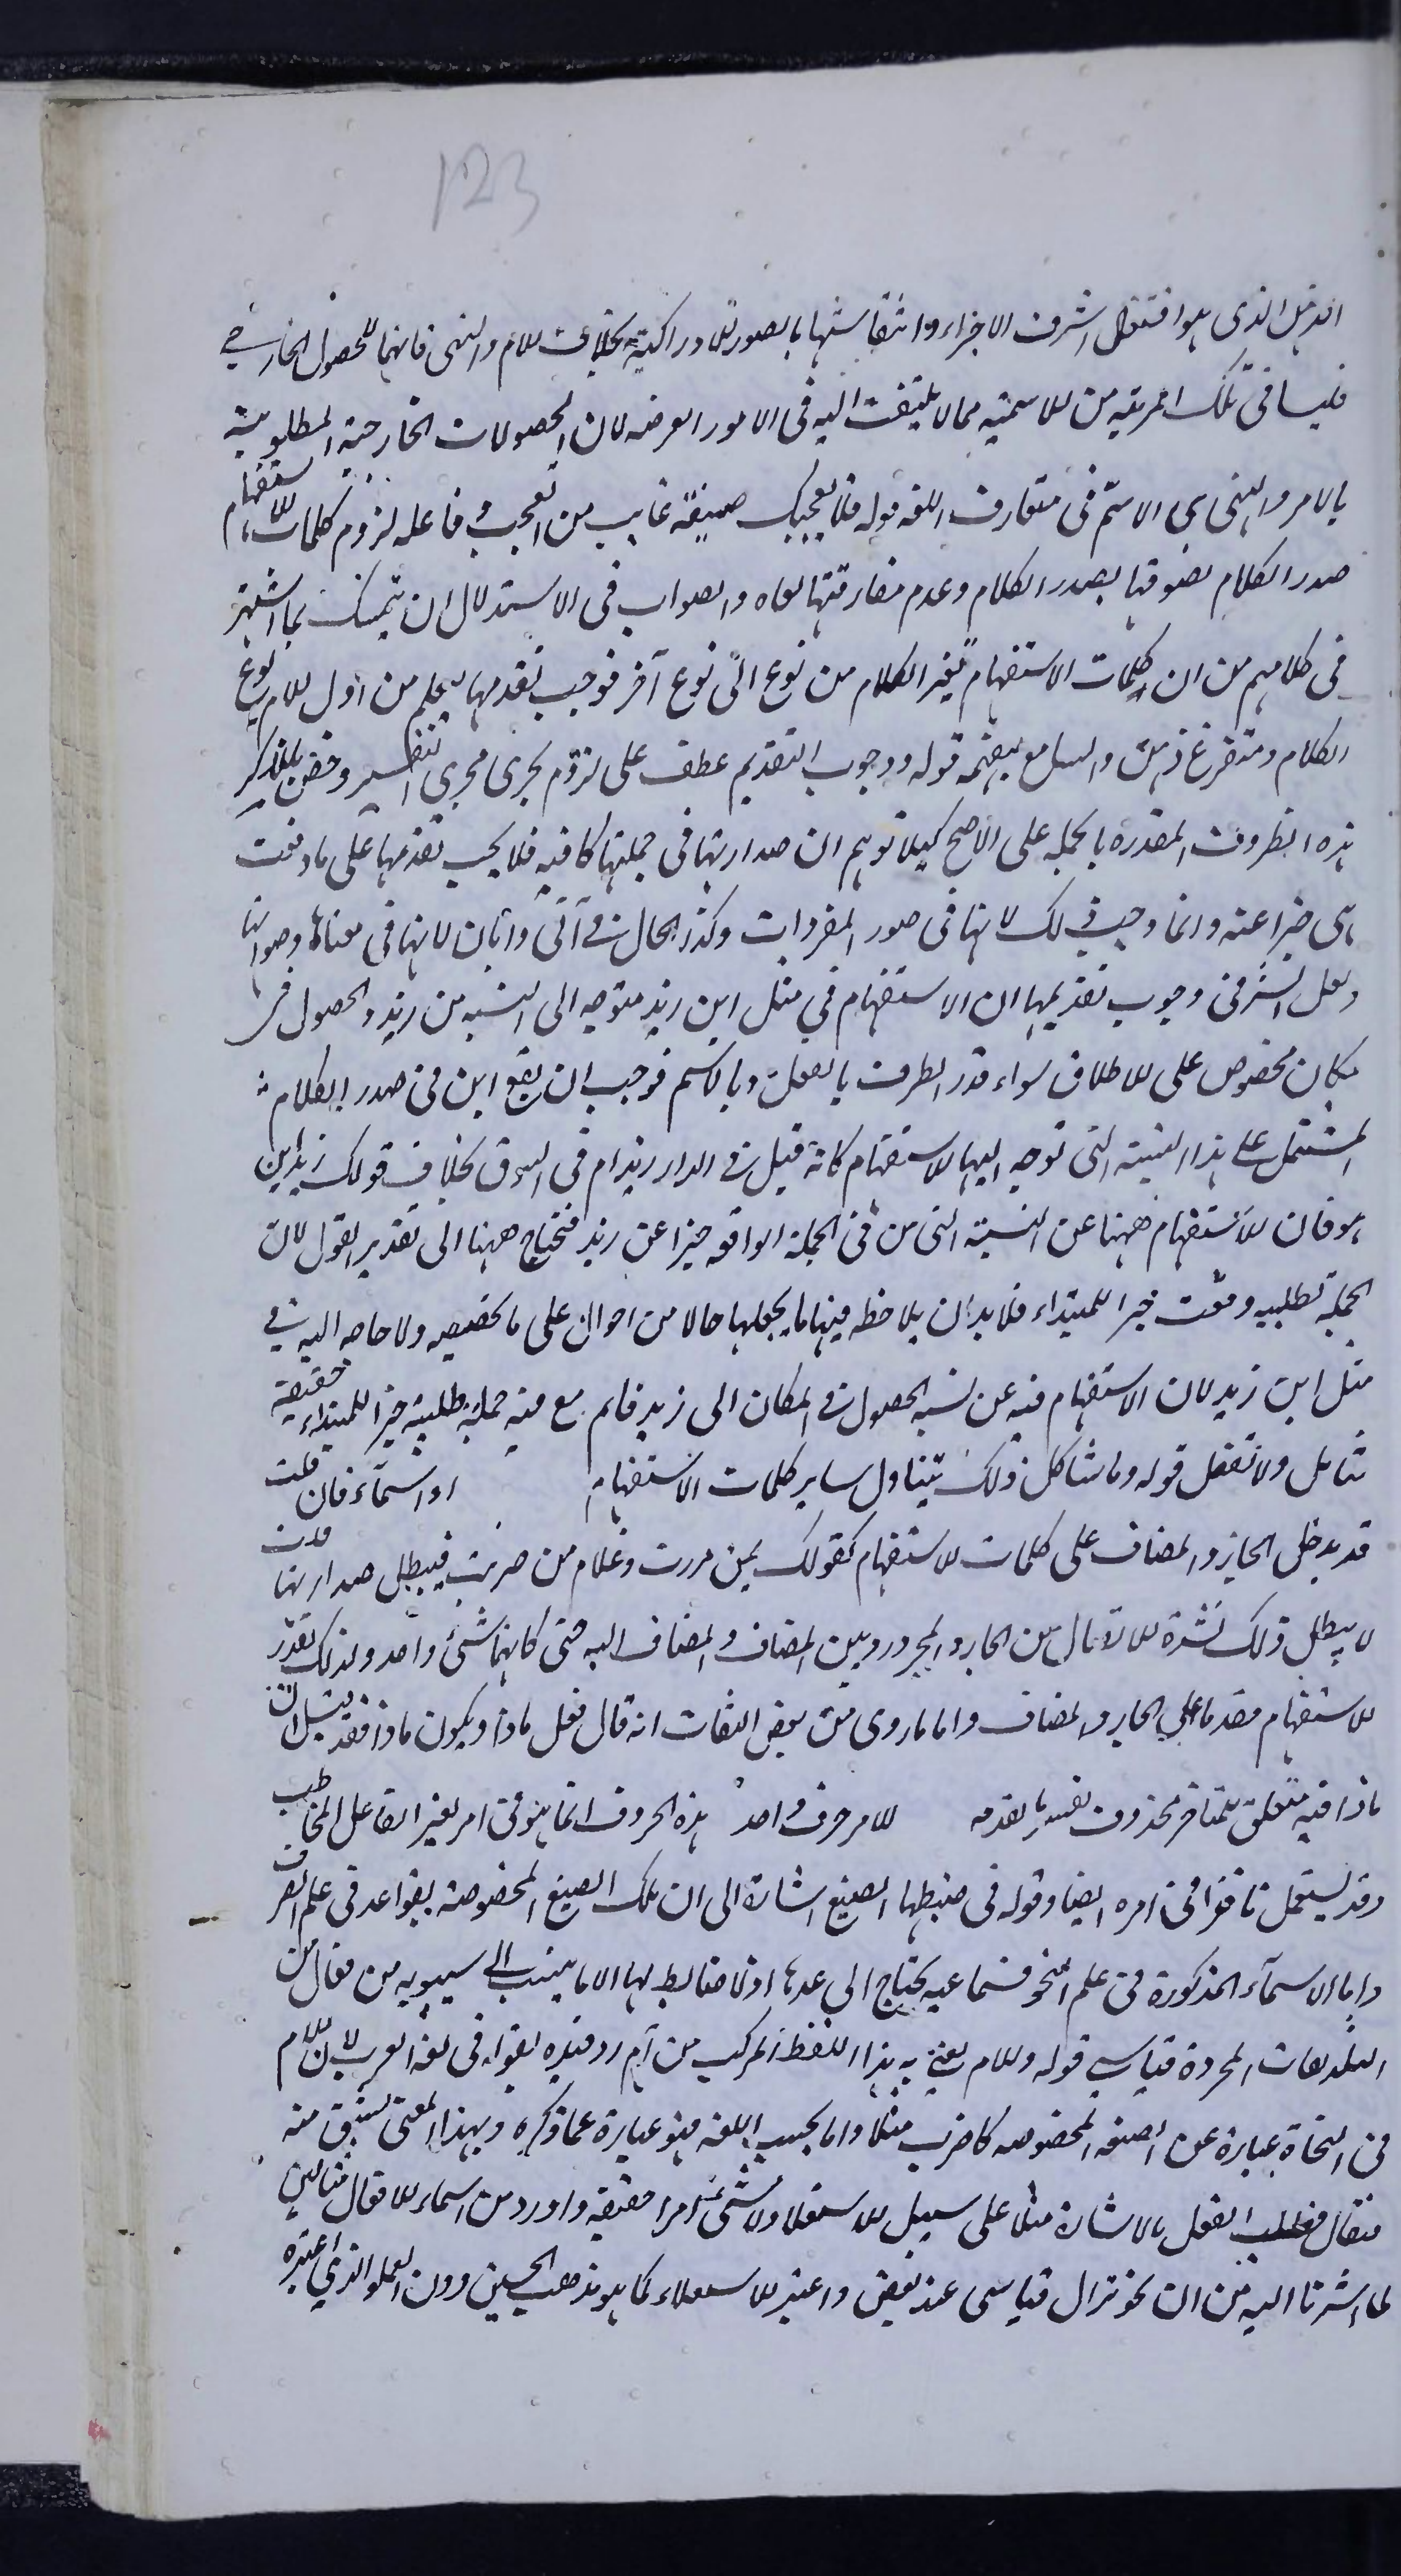 123
الذهن الذى هو افضل اشرف الاجزاء وانتقاشها بالصور الادراكية بخلاف الامر والنهى فانهما للحصول الخارجي
فى تلك المرتبة من الاهمية مما لا يلتفت اليه فى الامور العرضه لان الحصولات الخارجية المطلوبة
بالامر والنهى هى الاهم فى متعارف اللغه قوله فلا يعجبك صيغة غايب من العجب وفاعله لزوم كلمات الاستفهام
صدر الكلام لصوقها بصدر الكلام وعدم مفارقتها اياه والصواب فى الاستدلال ان يتمسك بما اشتهر
فى كلامهم من ان كلمات الاستفهام تغير الكلام من نوع الى نوع آخر فوجب تقدمها ليعلم من اول الامر نوع
الكلام ويتفرغ ذهن السامع لفهمه قوله ووجوب التقديم عطف على لزوم يجرى مجرى التفسير وخص بالذكر
هذه الظروف المقدرة بالجملة على الاصح كيلا توهم ان صدارتها فى جملتها كافية فلا يجب تقدمها على ما وقعت
هى خبرا عنه وانما وجب ذلك لانها فى صور المفردات وكذا الحال فى انى وايان لانها فى معناها
ولعل السر فى وجوب تقديمها ان الاستفهام في مثل اين زيد متوجه الى النسبه من زيد والحصول فى
مكان مخصوص على الاطلاق سواء قدر الظرف بالفعل او بالاسم فوجب ان يقع اين فى صدر الكلام
المشتمل على هذه النسبة التى توجه اليها الاستفهام كانه قيل فى الدار زيد ام فى السوق بخلاف قولك زيد اين
هو فان الاستفهام ههنا عن النسبة التى من فى الجملة الواقعه خبرا عن زيد فتحتاج ههنا الى تقدير القول لان
الجملة طلبيه وقعت خبرا للمبتداء فلا بد ان يلاحظ فيها ما يجعلها حالا من احواله على ما تحقيقه ولا حاجه اليه فى
مثل اين زيد لان الاستفهام فيه عن نسبه الحصول فى المكان الى زيد فلم يقع فيه جملة طلبية خبرا للمبتداء حقيقة
تامل ولا تغفل قوله وما شاكل ذلك يتناول ساير كلمات الاستفهام او اسماء فان قلت
قد يدخل الجار والمضاف على كلمات الاستفهام كقولك بمن مررت وغلام من ضربت فيبطل صدارتها قلت
لا يبطل ذلك لشدة الاتصال بين الجار والمجرور وبين المضاف والمضاف اليه حتى كانهما شىء واحد ولذلك تقدر
الاستفهام مقدما على الجار والمضاف واما ما روى عن بعض الثقات انه قال فعل ماذا ويكون ماذا فقد قيل ان
ماذا فيه متعلق بمتاخر محذوف تفسير بما تقدمه للامر حرف واحد هذه الحروف انما هو فى امر لغير الفاعل المخاطب
وقد يستعمل نافذا فى امره ايضا وقوله فى ضبطها الصيغ اشارة الى ان تلك الصيغ المخصوصة بقواعد فى علم الصرف
واما الاسمآء المذكورة فى علم النحو فسماعيه يحتاج الى عدها اذ لا ضابط لها الا ما ينسب الى سيبويه من فعال من
الثلاثيات المجردة قياسى قوله والام يعنى به هذا اللفظ المركب من ام ر وقيده بقوله فى لغه العرب لان الامر
فى النحاة عبارة عن الصيغه المخصوصه كاضرب مثلا واما بحسب اللغه فهو عبارة عما ذكره وبهذا المعنى يشتق منه
فيقال فطلب الفعل بالاشارة مثلا على سبيل الاستعلا لا يسمى امرا حقيقة واورد من اسماء الافعال مثالين
لما اشرنا اليه من ان نحو نزال قياسى عند بعض واعتبر الاستعلاء كما هو مذهب الحسين دون العلو الذى اعتبره